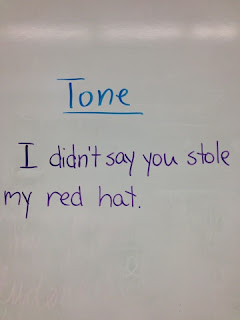 Tone
I didn't say you stole
my red hat.